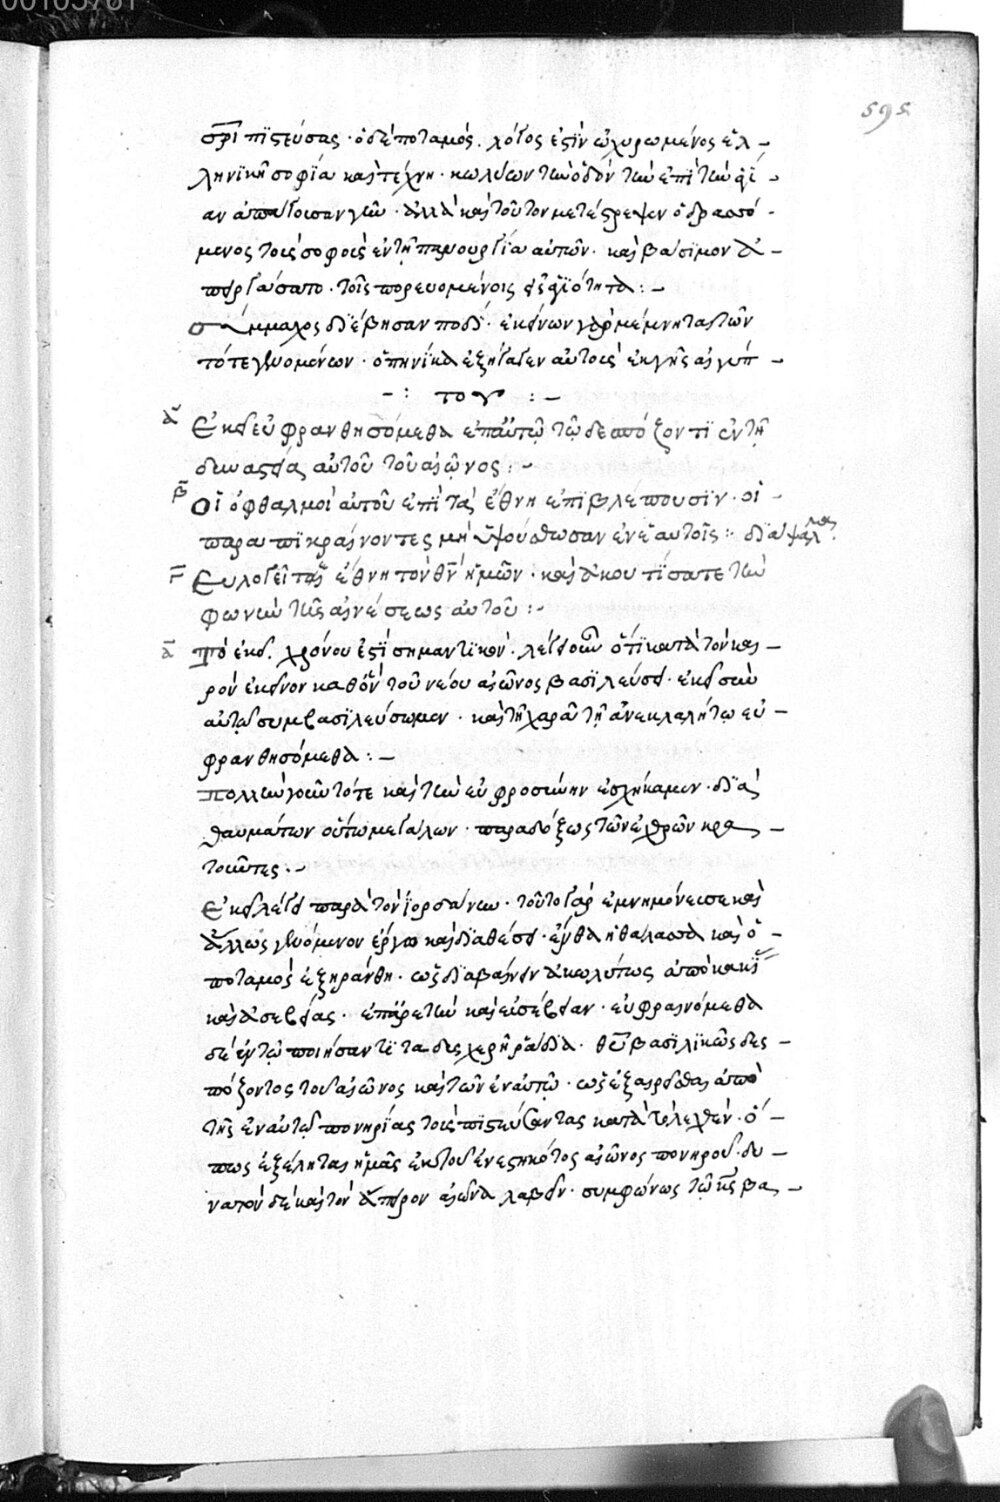 00105761
595
σρι πιστεύσας · ὁ δὲ ποταμός · λόγος ἐστὶν ὠχυρωμένος ἑλ –
ληνικῆ σοφία καὶ τέχνη · κωλύων τὴν ὁδὸν τὴν ἐπὶ τὴν
αν ἀπάγουσαν γῆν · ἀλλὰ καὶ τοῦτον μετέστρεψεν ὁ δρασσό –
μενος τοὺς σοφοὺς ἐν τῆ πανουργία αὐτῶν · καὶ βάσιμον ἀ –
πειργάσατο · τοῖς πορευομένοις :–
σύμμαχος διέβησαν ποδί · ἐκείνων γὰρ μέμνηται τῶν
τότε γενομένων · ὁπηνίκα ἐξήγαγεν αὐτοὺς ἐκ γῆς αἰγύπ –
– : του : –
α Ἐκεῖ εὐφρανθησόμεθα ἐπ' αὐτῷ τῷ δεσπόζοντι ἐν τῆ
δυναστεία αὐτοῦ τοῦ αἰῶνος : –
β Οἱ ὀφθαλμοὶ αὐτοῦ ἐπὶ τὰ ἔθνη ἐπιβλέπουσιν · οἱ –
παραπικραίνοντες μὴ ὑψούσθωσαν ἐν ἑαυτοῖς : διάψαλμα
γ Εὐλογεῖτε ἔθνη τὸν θν ἡμῶν · καὶ ἀκουτίσατε τὴν
φωνὴν τῆς αἰνέσεως αὐτοῦ : –
α Τὸ ἐκεῖ χρόνου ἐστὶ σημαντικόν · λέγει οὖν ὅτι κατὰ τὸν και –
ρὸν ἐκεῖνον καθ' ὃν τοῦ νέου αἰῶνος βασιλεύσει · ἐκεῖ σὺν
αὐτῷ συμβασιλεύσωμεν · καὶ τῆ χαρᾷ τῆ ἀνεκλαλήτῳ εὐ –
φρανθησόμεθα : –
πολλὴν γοῦν τότε καὶ τὴν εὐφροσύνην ἐσχήκαμεν · διὰ
θαυμάτων οὕτω μεγάλων · παραδόξως τῶν ἐχθρῶν κρα –
τοῦντες : –
Ἐκεῖ λέγει παρὰ τὸν ἰορδάνην · τοῦτο γὰρ ἐμνημόνευσε καὶ
ἄλλως γενόμενον ἔργω καὶ διαθέσει · ἔνθα ἡ θάλασσα καὶ ὁ –
ποταμὸς ἐξηράνθη · ὡς διαβαίνειν ἀκωλύτως ἀπὸ κακί
καὶ ἀσεβείας · ἐπ' ἀρετὴν καὶ εὐσέβειαν · εὐφραινόμεθα
δὲ ἐν τῷ ποιήσαντι τὰ δυσχερῆ ῥάδια · θῦ βασιλικῶς δεσ –
πόζοντος τοῦ αἰῶνος καὶ τῶν ἐν αὐτῷ · ὡς ἐξαιρεῖσθαι ἀπὸ
τῆς ἐν αὐτῷ πονηρίας τοὺς πιστεύσαντας κατὰ τὸ λεχθέν · ὅ –
πως ἐξέληται ἡμᾶς ἐκ τοῦ ἐνεστηκότος αἰῶνος πονηροῦ · δυ –
νατὸν δὲ καὶ τὸν ἄπειρον αἰῶνα λαβεῖν · συμφώνως τῷ κς βα –